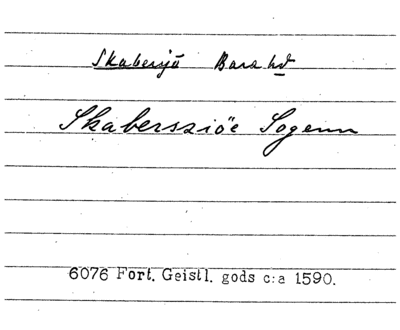 Skabersjö Bara hd
Skabersziöe Sogenn
6076 Fort. Geistl. gods c:a 1590.